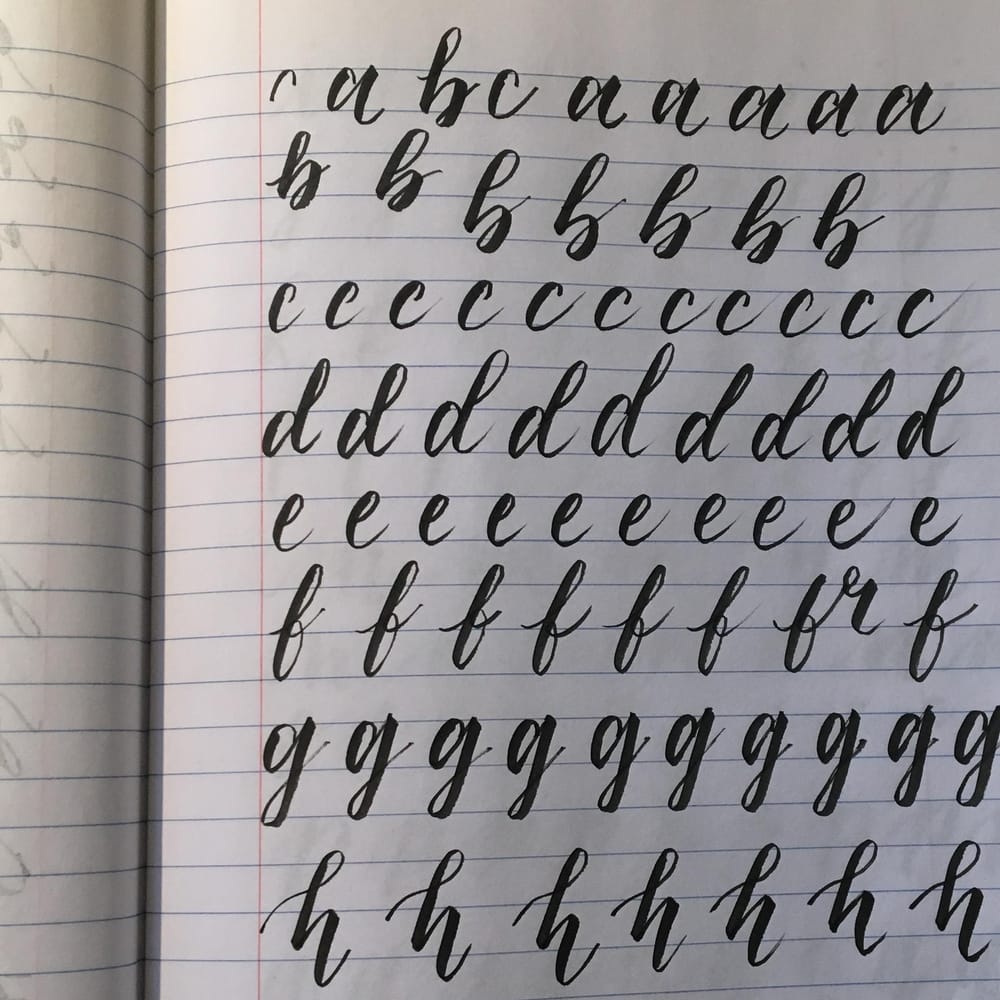 a bc a a a a a
b b b b b b b
c c c c c c c c c c c
d d d d d d d d d
e e e e e e e e e e
f f f f f f fr f
g g g g g g g g g g
h h h h h h h